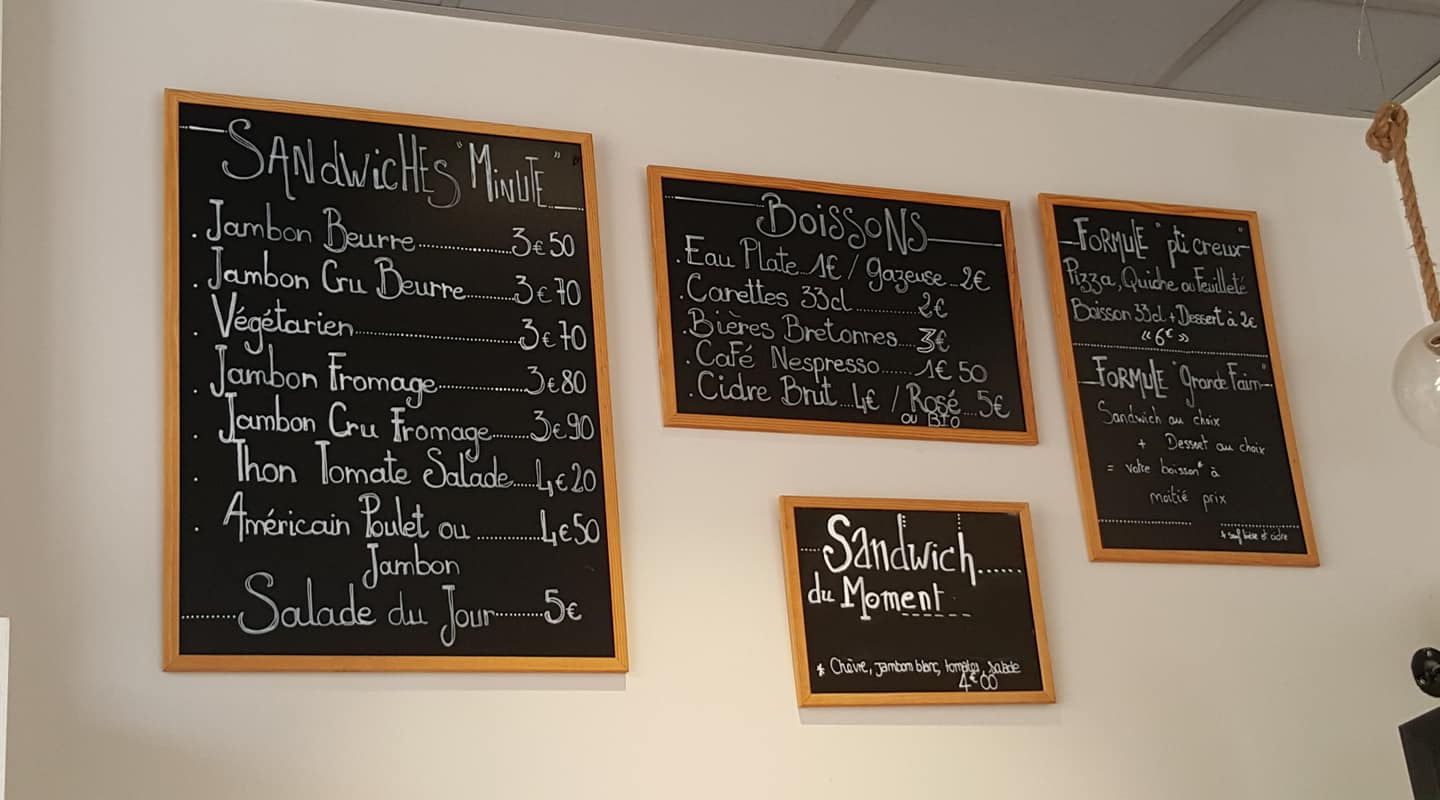 SANdwiCHES "MiNUTE"
. Jambon Beurre..................3€50
. Jambon Cru Beurre..........3€70
. Végétarien..............................3€70
. Jambon Fromage.................3€80
. Jambon Cru Fromage........3€90
. Thon Tomate Salade.....4€20
. Américain Poulet ou ............4€50
Jambon
.........Salade du Jour..........5€
BoissoNS
. Eau Plate...1€ / gazeuse...2€
. Canettes 33cl .............2€
. Bières Bretonnes....3€
. Café Nespresso.......1€50
. Cidre Brut....4€ / Rosé....5€
ou BIO
FORMULE "pti creux"
Pizza, Quiche ou Feuilleté
Boisson 33cl + Dessert à 2€
"6€"
FORMULE "Grande Faim"
Sandwich au choix
+ Dessert au choix
= votre boisson* à
moitié prix
* sauf bière et cidre
Sandwich......
du Moment
* Chèvre, jambon blanc, tomates, salade
4€00